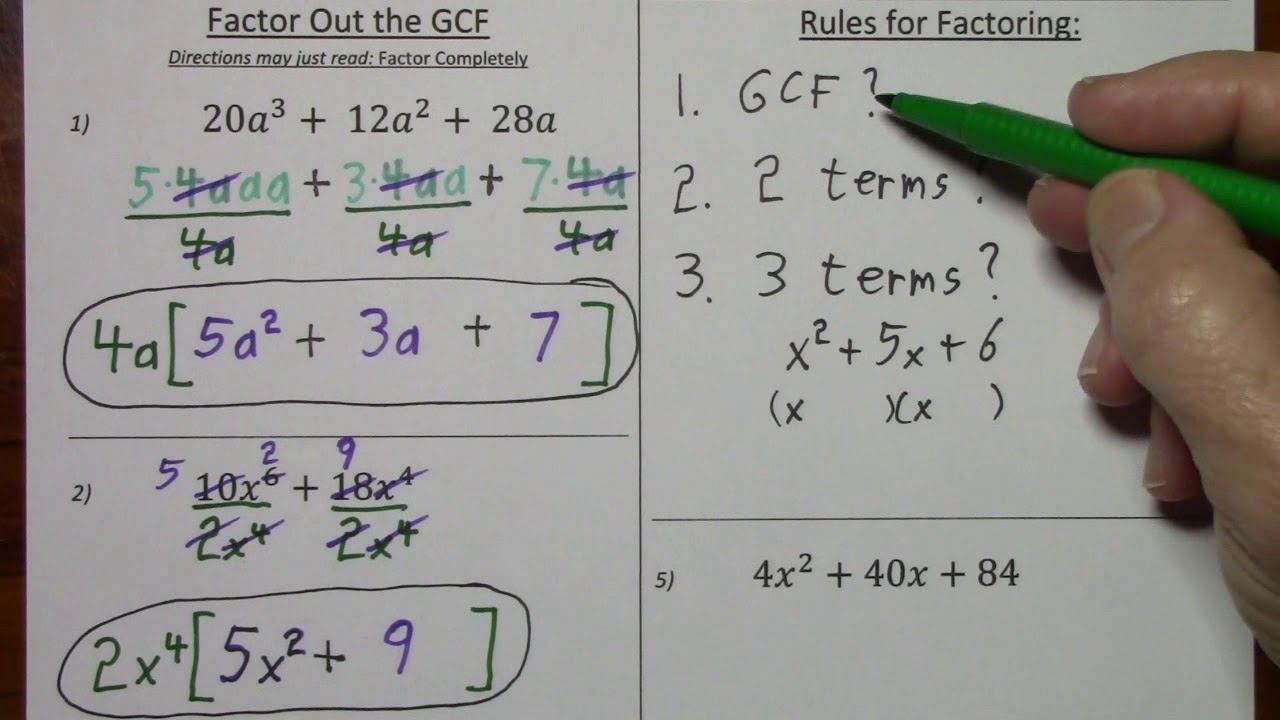 Factor Out the GCF
Directions may just read: Factor Completely
1) 20a³ + 12a² + 28a
5·4aaa + 3·4aa + 7·4a
4a 4a 4a
4a[5a² + 3a + 7]
2) 5 10x⁶ 2 + 9 18x⁴
2x⁴ 2x⁴
2x⁴[5x² + 9]
Rules for Factoring:
1. GCF?
2. 2 terms
3. 3 terms?
x² + 5x + 6
(x )(x )
5) 4x² + 40x + 84